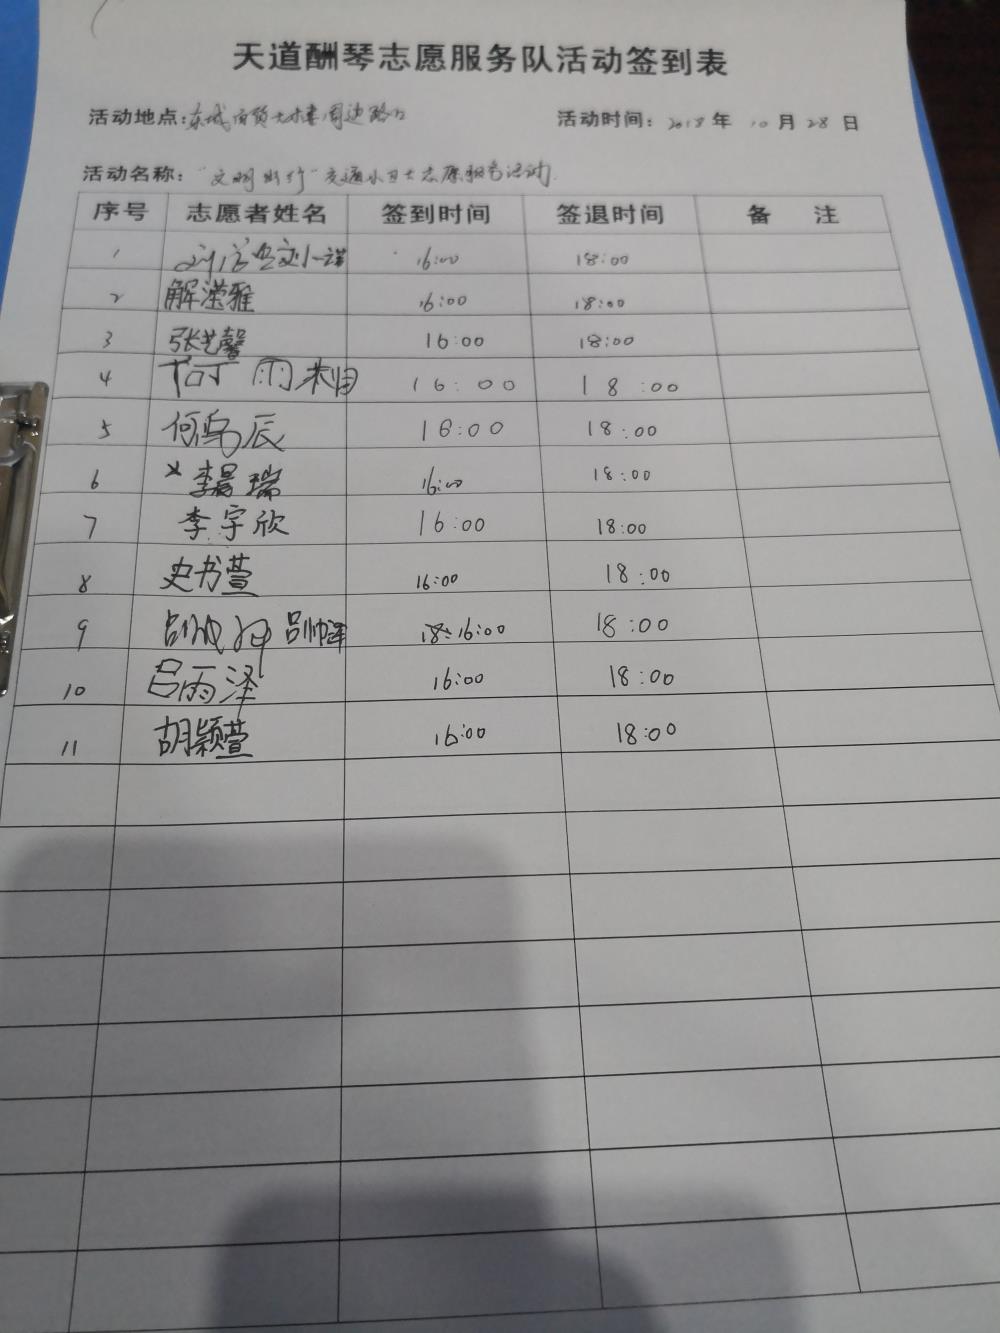 天道酬琴志愿服务队活动签到表
活动地点:东城百货大楼周边路口 活动时间:2018年10月28日
活动名称:"文明出行"交通小卫士志愿服务活动.
序号 志愿者姓名 签到时间 签退时间 备 注
1 16:00 18:00
2 解滢雅 16:00 18:00
3 张艺馨 16:00 18:00
4 何雨 16:00 18:00
5 何 辰 16:00 18:00
6 李晨瑞 16:00 18:00
7 李宇欣 16:00 18:00
8 史书萱 16:00 18:00
9 吕帅泽 18:16:00 18:00
10 吕雨泽 16:00 18:00
11 胡颖萱 16:00 18:00